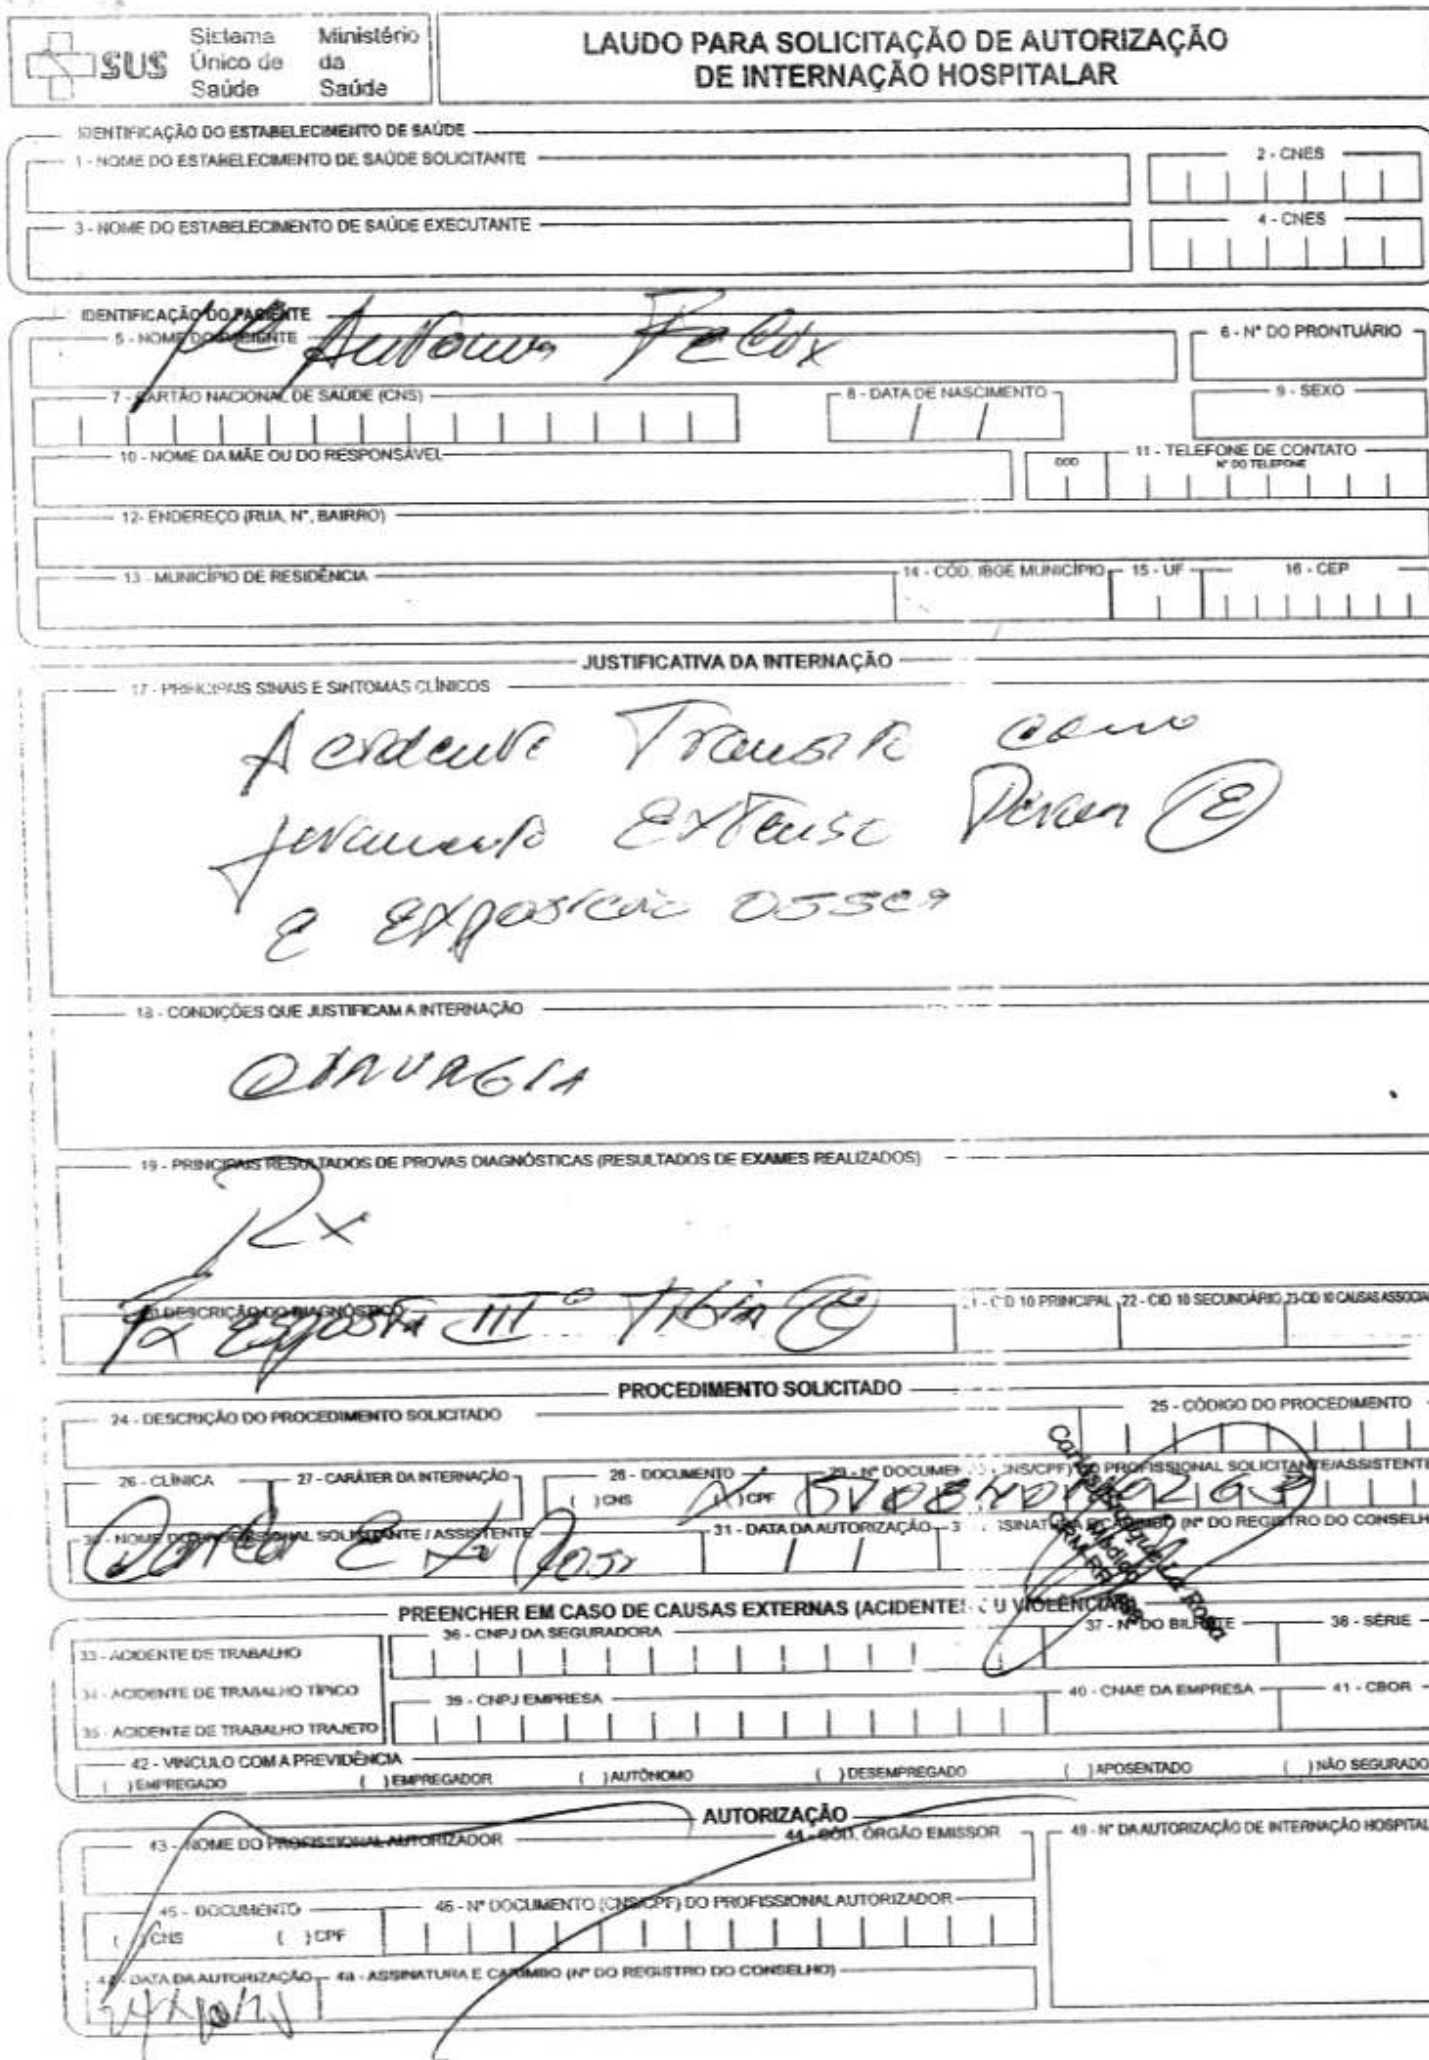 SUS
Sistema Único de Saúde
Ministério da Saúde
LAUDO PARA SOLICITAÇÃO DE AUTORIZAÇÃO
DE INTERNAÇÃO HOSPITALAR
IDENTIFICAÇÃO DO ESTABELECIMENTO DE SAÚDE
1 - NOME DO ESTABELECIMENTO DE SAÚDE SOLICITANTE
2 - CNES
3 - NOME DO ESTABELECIMENTO DE SAÚDE EXECUTANTE
4 - CNES
IDENTIFICAÇÃO DO PACIENTE
5 - NOME DO PACIENTE
6 - N° DO PRONTUÁRIO
7 - CARTÃO NACIONAL DE SAÚDE (CNS)
8 - DATA DE NASCIMENTO
9 - SEXO
10 - NOME DA MÃE OU DO RESPONSÁVEL
11 - TELEFONE DE CONTATO
DDD
N° DO TELEFONE
12- ENDEREÇO (RUA, N°, BAIRRO)
13 - MUNICÍPIO DE RESIDÊNCIA
14 - CÓD. IBGE MUNICÍPIO
15 - UF
16 - CEP
JUSTIFICATIVA DA INTERNAÇÃO
17 - PRINCIPAIS SINAIS E SINTOMAS CLÍNICOS
Acidente Transito
Extenso
e Exposicio ossea
18 - CONDIÇÕES QUE JUSTIFICAM A INTERNAÇÃO
CIRURGIA
19 - PRINCIPAIS RESULTADOS DE PROVAS DIAGNÓSTICAS (RESULTADOS DE EXAMES REALIZADOS)
Rx
20 DESCRIÇÃO DO DIAGNÓSTICO
Fx Exposta III° Tibia (E)
21 - CID 10 PRINCIPAL
22 - CID 10 SECUNDÁRIO
23-CID 10 CAUSAS ASSOCIA
PROCEDIMENTO SOLICITADO
24 - DESCRIÇÃO DO PROCEDIMENTO SOLICITADO
25 - CÓDIGO DO PROCEDIMENTO
26 - CLÍNICA
27 - CARÁTER DA INTERNAÇÃO
28 - DOCUMENTO
( ) CNS
(X) CPF
29 - N° DOCUMENTO (CNS/CPF) DO PROFISSIONAL SOLICITANTE/ASSISTENTE
30 - NOME DO PROFISSIONAL SOLICITANTE / ASSISTENTE
31 - DATA DA AUTORIZAÇÃO
PREENCHER EM CASO DE CAUSAS EXTERNAS (ACIDENTES OU VIOLÊNCIAS)
33 - ACIDENTE DE TRABALHO
36 - CNPJ DA SEGURADORA
37 - N° DO BILHETE
38 - SÉRIE
34 - ACIDENTE DE TRABALHO TÍPICO
39 - CNPJ EMPRESA
40 - CNAE DA EMPRESA
41 - CBOR
35 - ACIDENTE DE TRABALHO TRAJETO
42 - VINCULO COM A PREVIDÊNCIA
( ) EMPREGADO ( ) EMPREGADOR ( ) AUTÔNOMO ( ) DESEMPREGADO ( ) APOSENTADO ( ) NÃO SEGURADO
AUTORIZAÇÃO
43 - NOME DO PROFISSIONAL AUTORIZADOR
44 - CÓD. ÓRGÃO EMISSOR
49 - N° DA AUTORIZAÇÃO DE INTERNAÇÃO HOSPITAL
45 - DOCUMENTO
( ) CNS ( ) CPF
46 - N° DOCUMENTO (CNS/CPF) DO PROFISSIONAL AUTORIZADOR
DATA DA AUTORIZAÇÃO
48 - ASSINATURA E CARIMBO (N° DO REGISTRO DO CONSELHO)